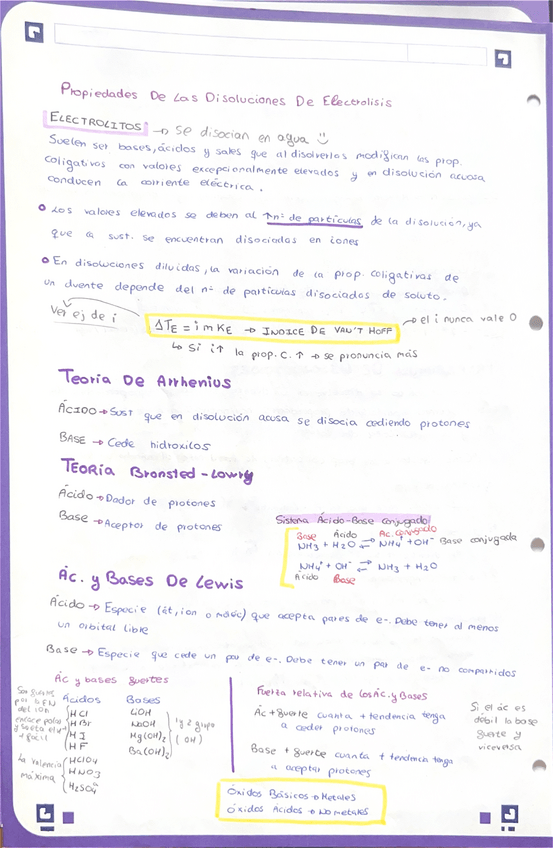 Propiedades De Las Disoluciones De Electrolisis
ELECTROLITOS → Se disocian en agua
Suelen ser bases, ácidos y sales que al disolverlos modifican las prop.
coligativas con valores excepcionalmente elevados y en disolución acuosa
conducen la corriente eléctrica.
Los valores elevados se deben al ↑nº de partículas de la disolución, ya
que la sust. se encuentran disociadas en iones
En disoluciones diluidas, la variación de la prop. coligativas de
un duente depende del nº de partículas disociadas de soluto.
Ver ej de i
ΔTE = i m KE → INDICE DE VAN'T HOFF → el i nunca vale 0
↳ Si i↑ la prop. C. ↑ → se pronuncia más
Teoría De Arrhenius
ÁCIDO → Sust que en disolución acusa se disocia cediendo protones
BASE → Cede hidroxilos
TEORÍA Bronsted-Lowry
Ácido → Dador de protones
Base → Aceptor de protones
Sistema Ácido-Base conjugado
Base Ácido Ac. conjugado
NH3 + H2O ⇄ NH4+ + OH- Base conjugada
NH4+ + OH- ⇄ NH3 + H2O
Ácido Base
Ác. y Bases De Lewis
Ácido → Especie (át, ion o moléc) que acepta pares de e-. Debe tener al menos
un orbital libre
Base → Especie que cede un par de e-. Debe tener un par de e- no compartidos
Ác y bases fuertes
Son fuertes
por la EN
del ion
enlace polar
y suelta el H+
+ fácil
Ácidos
HCl
HBr
HI
HF
La valencia
máxima
HClO4
HNO3
H2SO4
Bases
LiOH
NaOH
Mg(OH)2
Ba(OH)2
1 y 2 grupo
(OH)
Fuerta relativa de los Ác. y Bases
Ác + fuerte cuanta + tendencia tenga
a ceder protones
Base + fuerte cuanta + tendencia tenga
a aceptar protones
Si el ác es
débil la base
fuerte y
viceversa
Óxidos Básicos → Metales
Óxidos Ácidos → No metales